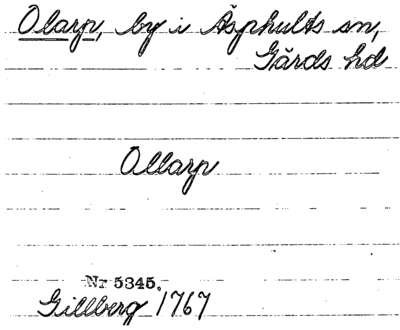 Olarp, by i Äsphults sn,
Gärds hd
Ollarp
Nr 5345.
Gillberg 1767